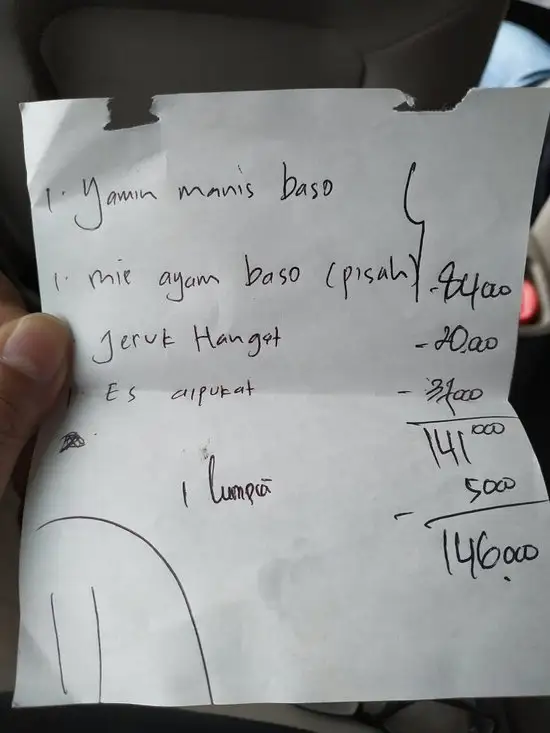 1. Yamin manis baso
1. mie ayam baso (pisah) - 84000
Jeruk Hangat - 20.000
Es alpukat - 37000
141000
1 lumpia 5000
- 146.000